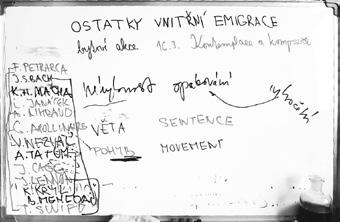 OSTATKY VNITŘNÍ EMIGRACE
bytová akce 16.3. Kontemplace a komprese
F. PETRARCA
J.S. BACH
K.H. MÁCHA
L. JANÁČEK
A. RIMBAUD
G. APOLLINAIRE
V. NEZVAL
A. TATUM
J. CAGE
J. LENNON
K. KRYL
B. MENCÁK
T. SWIFT
opakování
VĚTA SENTENCE
POHYB MOVEMENT